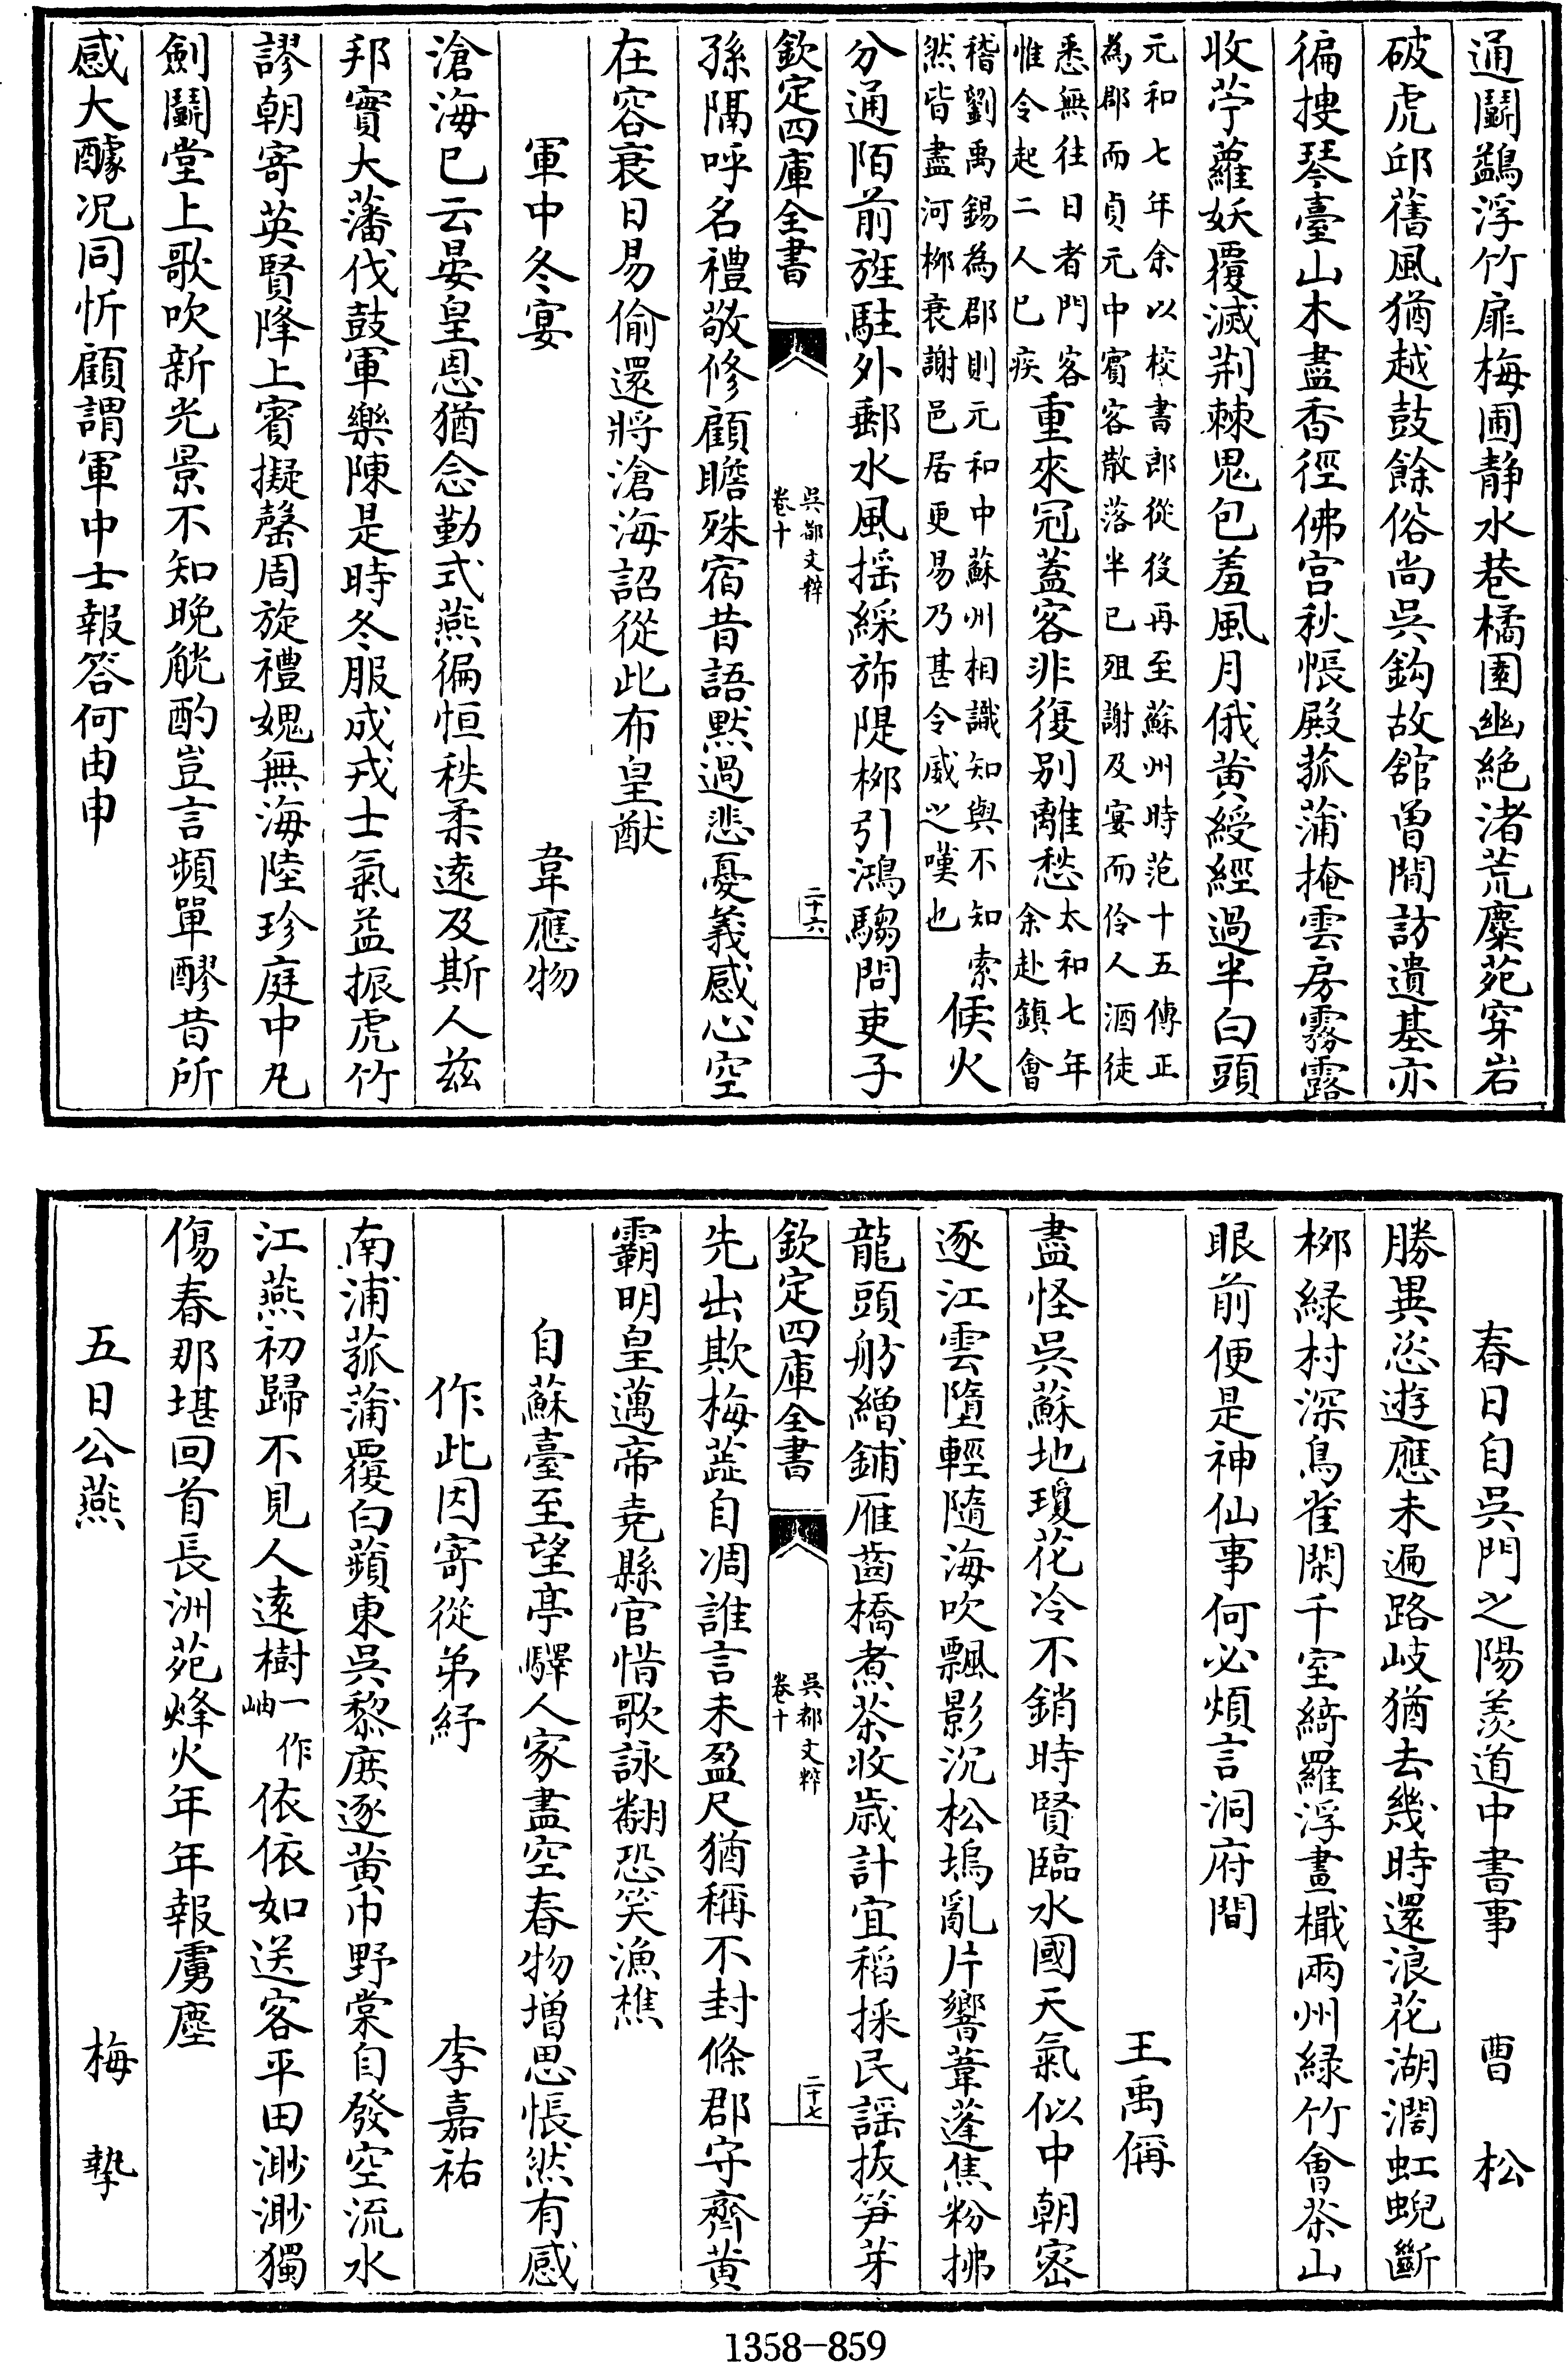 通鬬鷁浮竹扉梅圃静水巷橘園幽絶渚荒麋苑穿岩
破虎邱舊風猶越鼓餘俗尚吳鈎故舘曽閒訪遺基亦
徧摟琴臺山木盡香徑佛宫秋悵殿菰蒲掩雲房霧露
收苧蘿妖覆滅荆棘鬼包羞風月俄黄綬經過半白頭
元和七年余以校書郎從役再至蘇州時范十五傳正
為郡而貞元中賓客散落半已殂謝及宴而伶人酒徒
悉無往日者門客
惟令起二人已疾
重來冠蓋客非復别離愁
太和七年
余赴鎮會
稽劉禹錫為郡則元和中蘇州相識知與不知索
然皆盡河栁衰謝邑居更易乃甚令威之嘆也
候火
分通陌前旌駐外郵水風揺綵斾隄栁引鴻騶問吏子
欽定四庫全書
吳都文粹
卷十
二十六
孫隔呼名禮敬修顧瞻殊宿昔語黙過悲憂義感心空
在容衰日易偷還將滄海詔從此布皇猷
軍中冬宴 韋應物
滄海已云晏皇恩猶念勤式燕徧恒秩柔逺及斯人兹
邦實大藩伐鼓軍樂陳是時冬服成戎士氣益振虎竹
謬朝寄英賢降上賓擬罄周旋禮媿無海陸珍庭中丸
劍鬬堂上歌吹新光景不知晚觥酌豈言頻單醪昔所
感大醵况同忻顧謂軍中士報答何由申
春日自吳門之陽羨道中書事 曹松
勝異恣遊應未遍路岐猶去幾時還浪花湖濶虹蜺斷
栁緑村深鳥雀閑千室綺羅浮畫檝兩州緑竹會茶山
眼前便是神仙事何必煩言洞府間
王禹偁
盡怪吳蘇地瓊花冷不銷時賢臨水國天氣似中朝密
逐江雲墮輕隨海吹飄影沉松塢亂片響葦蓬焦粉拂
龍頭舫繒鋪雁齒橋煮茶收歳計宜稻採民謡拔笋芽
欽定四庫全書
吳都文粹
卷十
二十七
先出欺梅蕋自凋誰言未盈尺猶稱不封條郡守齊黄
霸明皇邁帝堯縣官惜歌詠翻恐笑漁樵
自蘇臺至望亭驛人家盡空春物增思悵然有感
作此因寄從弟紓 李嘉祐
南浦菰蒲覆白蘋東吳黎庶逐黄巾野棠自發空流水
江燕初歸不見人逺樹一作岫依依如送客平田渺渺獨
傷春那堪回首長洲苑烽火年年報虜塵
五日公燕 梅摯
1358-859